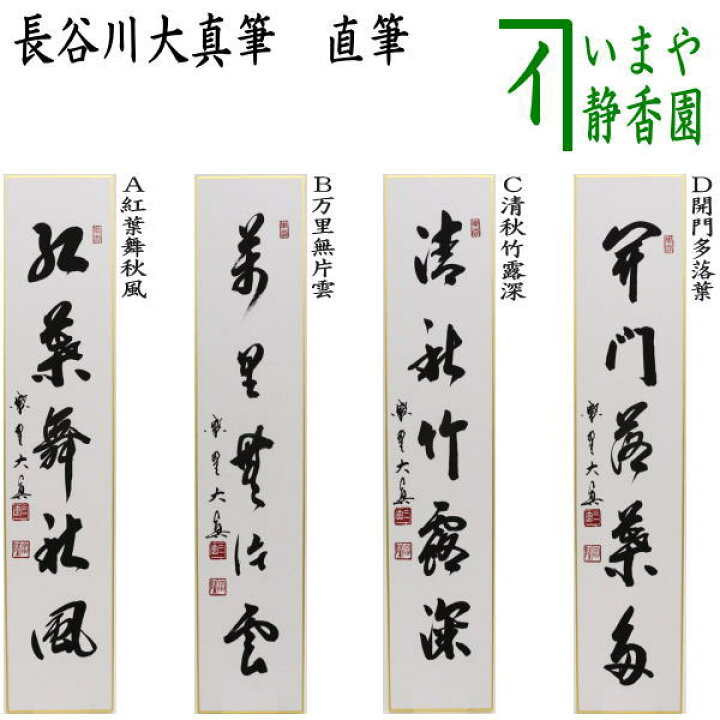 長谷川大真筆　直筆
いまや
静香園
A紅葉舞秋風
紅葉舞秋風
大真
B万里無片雲
萬里無片雲
大真
C清秋竹露深
清秋竹露深
大真
D開門多落葉
開門落葉多
大真